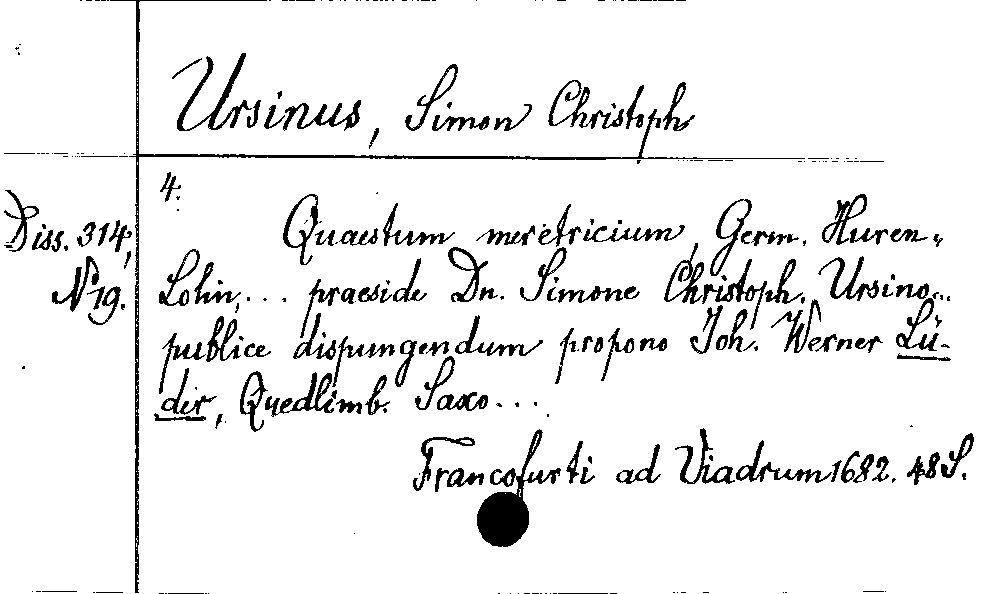 Ursinus, Simon Christoph
4.
Diss. 314, Quaestum meretricium, Germ. Huren-
N 19. Lohn, ... praeside Dn. Simone Christoph. Ursino...
publice dispungendum propono Joh. Werner Lü-
der, Quedlimb. Saxo...
Francofurti ad Viadrum 1682. 48 S.